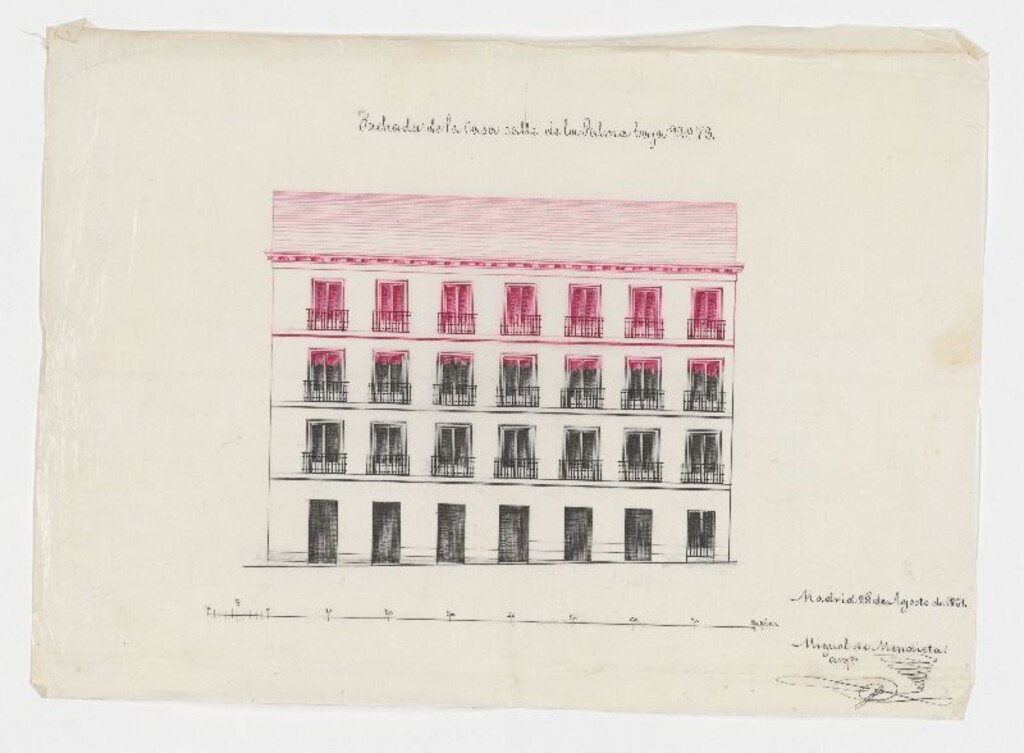 Fachada de la Casa calle de la Palma baja Nº 73.
10 20 30 40 50 60 70 pies
Madrid 28 de Agosto de 1861.
Miguel de Mendieta
Arqto